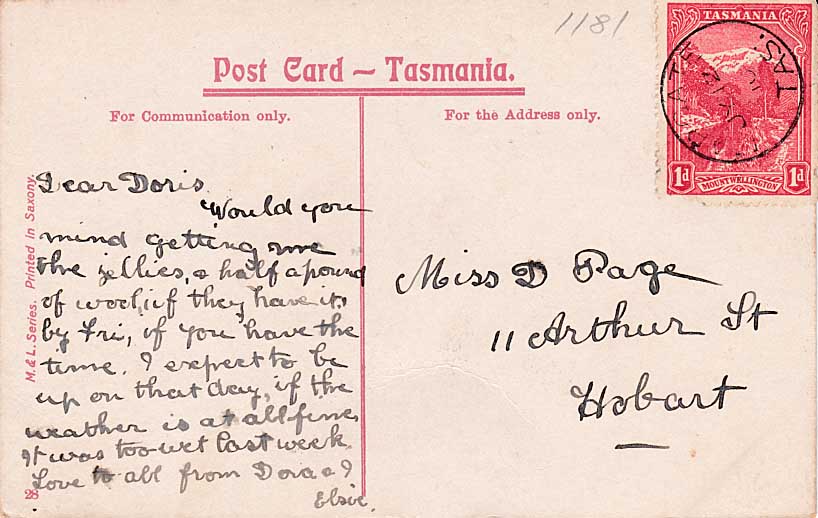 1181
Post Card – Tasmania.
For Communication only.
For the Address only.
TASMANIA
1d
MOUNT WELLINGTON
1d
TAS.
M. & L. Series. Printed in Saxony.
Dear Doris
Would you
mind getting me
the jellies, & half a pound
of wool, if they have it,
by Fri, if you have the
time. I expect to be
up on that day, if the
weather is at all fine.
It was too wet last week.
Love to all from Dora & I
Elsie.
28
Miss D Page
11 Arthur St
Hobart